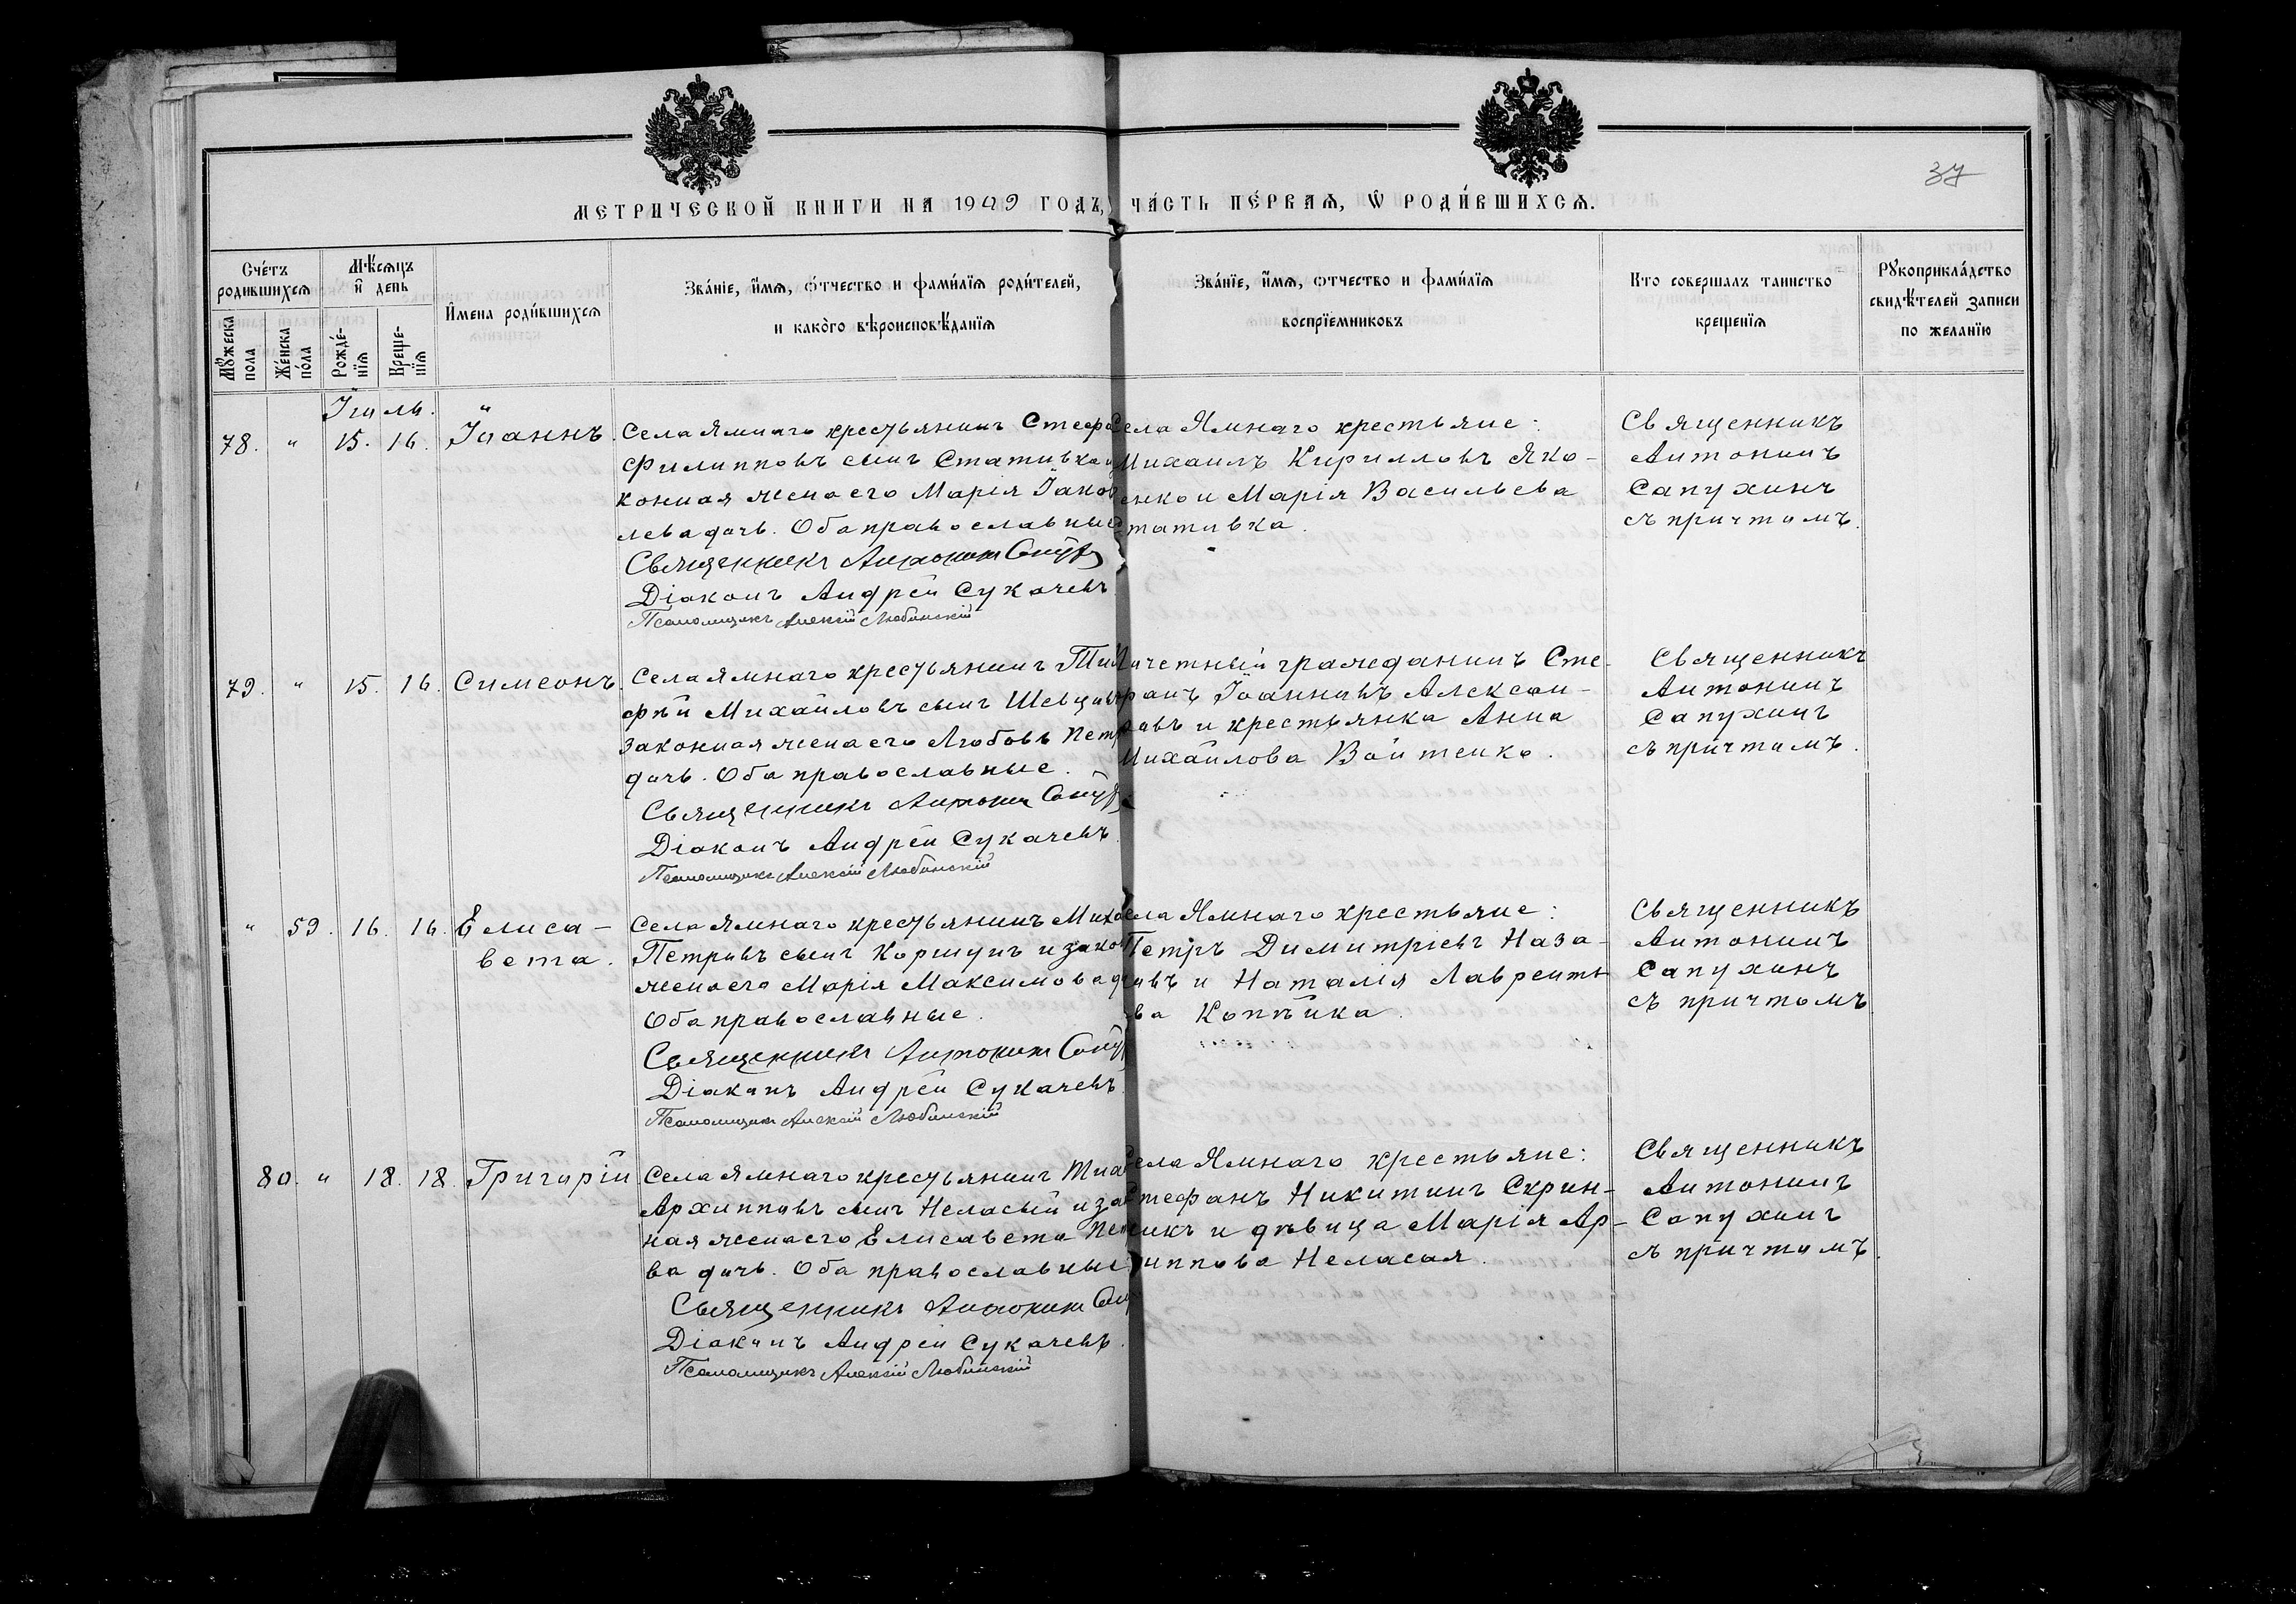 37
МЕТРИЧЕСКОЙ КНИГИ НА 1909 ГОДЪ, ЧА́СТЬ ПЕ́РВАЯ, Ѡ РОДИ́ВШИХСЯ.
Сче́тъ родившихся
Мѣ́сяцъ и день
Имена роди́вшихся
Зва́ніе, и́мя, о́тчество и фами́лія роди́телей,
и како́го вѣроисповѣ́данія
Зва́ніе, и́мя, отчество и фами́лія
воспріемниковъ
Кто совершалъ таинство
крещенія
Рукоприкла́дство
свидѣ́телей записи
по желанію
Мужеска пола
Же́нска по́ла
Рожде́-нія
Креще-нія
Іюль.
78. " 15. 16. Іоаннъ.
Села Ямнаго крестьянинъ Стефа
Филипповъ сынъ Стативка и
конная жена его Марія Іаков
лева дочь. Оба православные
Священникъ Антонин Сапух
Діаконъ Андрей Сукачевъ
Псаломщикъ Алексій Любинскій
Села Ямнаго крестьяне:
Михаилъ Кирилловъ Яко-
енко и Марія Васильева
Стативка.
Священникъ
Антонинъ
Сапухинъ
съ причтомъ.
79. " 15. 16. Симеонъ.
Села Ямнаго крестьянинъ Тим
фѣй Михайловъ сынъ Шевцовъ
законная жена его Любовь Петр
дочь. Оба православные.
Священникъ Антонин Сапух
Діаконъ Андрей Сукачевъ.
Псаломщикъ Алексій Любинскій
очетный гражданинъ Сте-
фанъ Іоанновъ Алексан-
ровъ и крестьянка Анна
Михайлова Войтенко.
Священникъ
Антонинъ
Сапухинъ
съ причтомъ.
" 59. 16. 16. Елиса-
вета.
Села Ямнаго крестьянинъ Миха
Петровъ сынъ Коршунъ и закон
жена его Марія Максимова д
Оба православные.
Священникъ Антонин Сапу
Діаконъ Андрей Сукачевъ.
Псаломщикъ Алексій Любинскій
ела Ямнаго крестьяне:
Петръ Димитріевъ Наза-
овъ и Наталія Лавренть
ва Копѣйка.
Священникъ
Антонинъ
Сапухинъ
съ причтомъ
80. " 18. 18. Григорій
Села Ямнаго крестьянинъ
Архипповъ сынъ Неласый и за
ная жена его Елисавета Пет
ва дочь. Оба православные
Священникъ Антонин Сап
Діаконъ Андрей Сукачевъ.
Псаломщикъ Алексій Любинскій
ела Ямнаго крестьяне:
Стефанъ Никитинъ Скрин-
икъ и дѣвица Марія Ар-
хиппова Неласая.
Священникъ
Антонинъ
Сапухинъ
съ причтомъ.